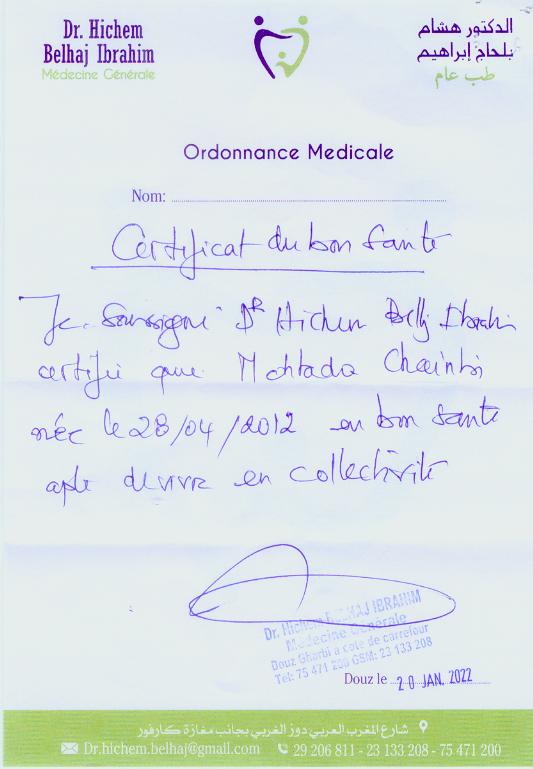 Dr. Hichem
Belhaj Ibrahim
Médecine Générale
الدكتور هشام
بلحاج إبراهيم
طب عام
Ordonnance Medicale
Nom:
Certificat du bon santé
Je Soussigné Dr Hichem Belhj Ibrahim
certifie que Mohtada Chainbi
née le 28/04/2012 en bon santé
apte de vivre en collectivité
Dr. Hichem BELHAJ IBRAHIM
Médecine Générale
Douz Gharbi a cote de carrefour
Tel: 75 471 200 GSM: 23 133 208
Douz le 20 JAN. 2022
شارع المغرب العربي دوز الغربي بجانب مغازة كارفور
Dr.hichem.belhaj@gmail.com 29 206 811 - 23 133 208 - 75 471 200